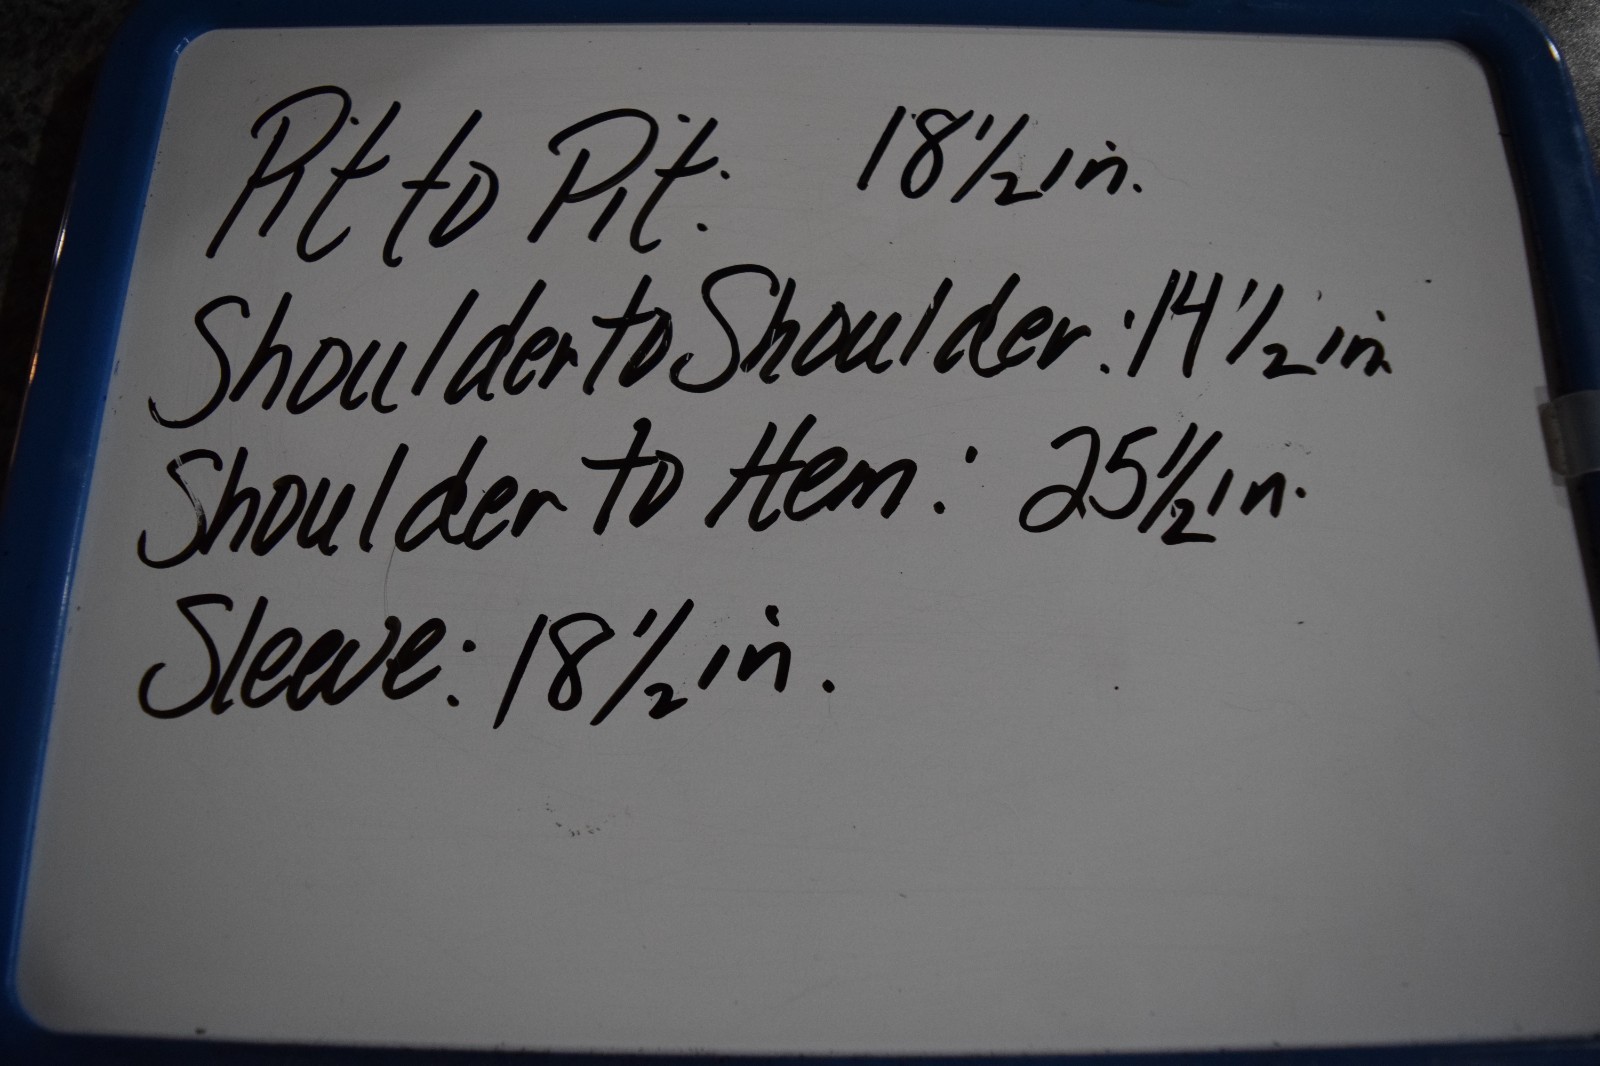 Pit to Pit: 18 1/2 in.
Shoulder to Shoulder: 14 1/2 in.
Shoulder to Hem: 25 1/2 in.
Sleeve: 18 1/2 in.